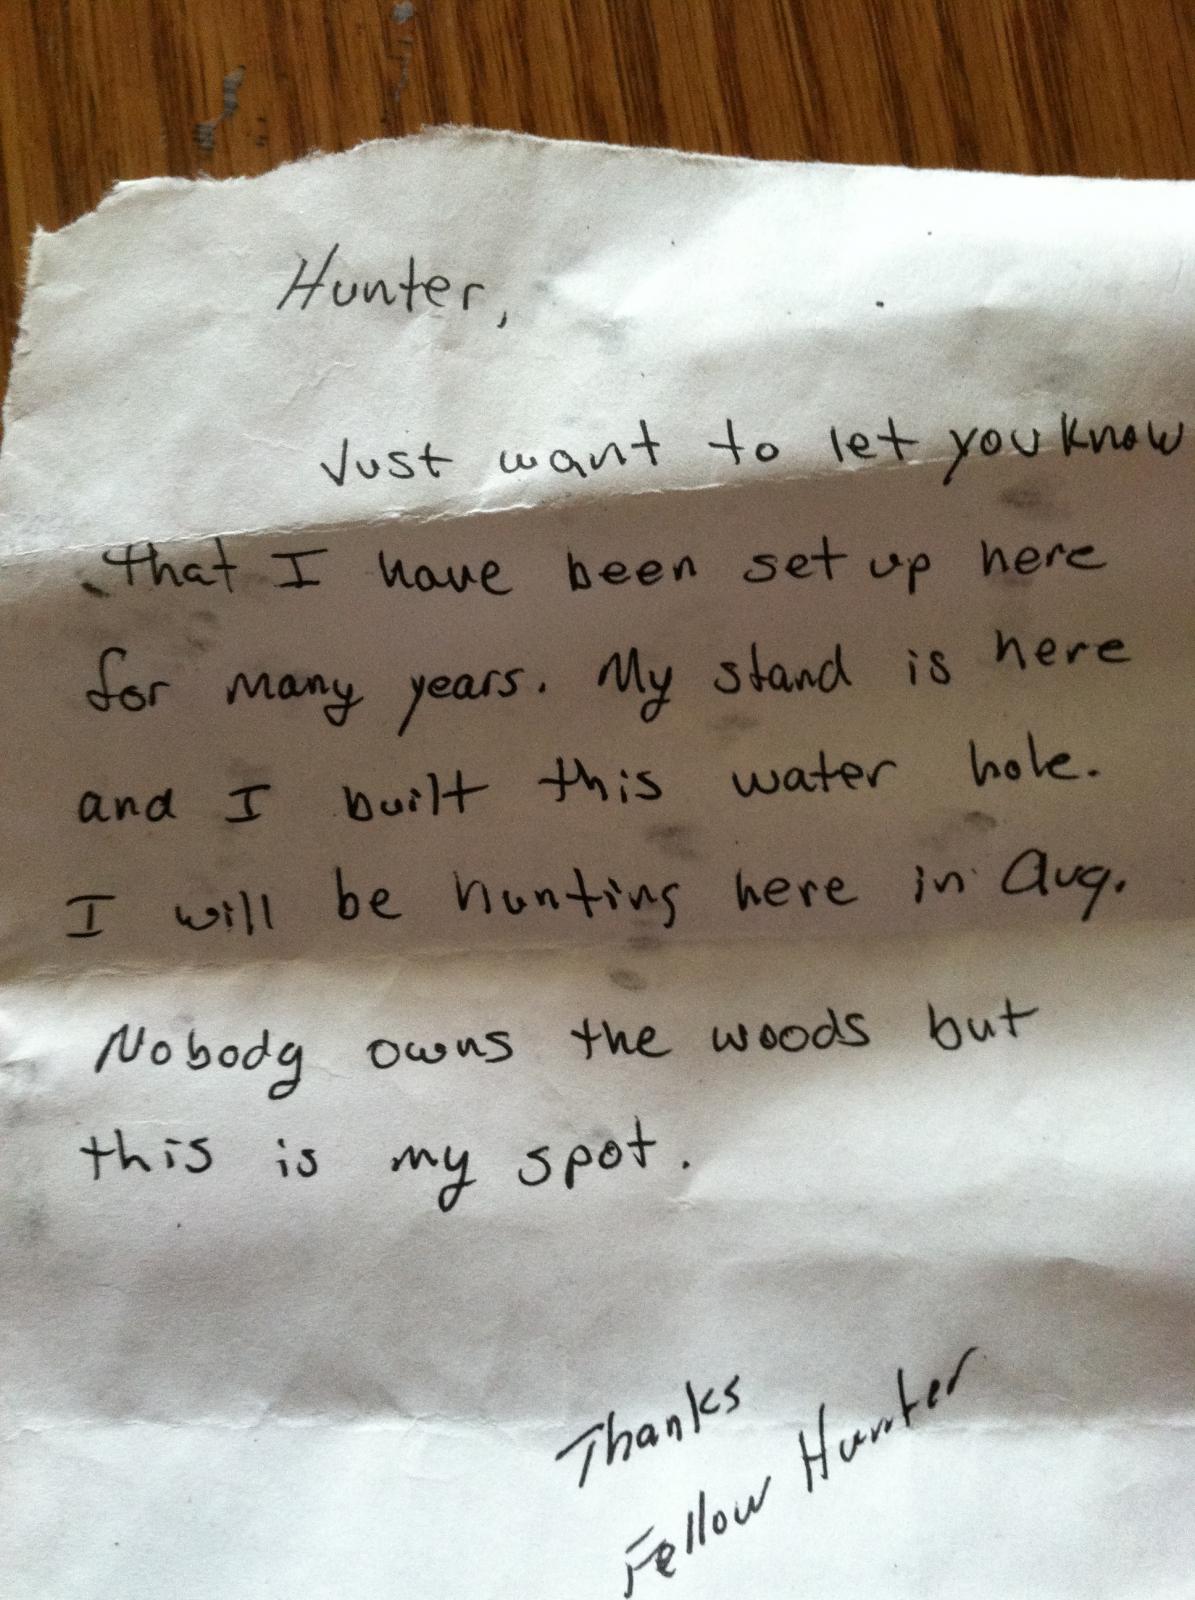 Hunter,
Just want to let you know
that I have been set up here
for many years. My stand is here
and I built this water hole.
I will be hunting here in Aug.
Nobody owns the woods but
this is my spot.
Thanks
Fellow Hunter